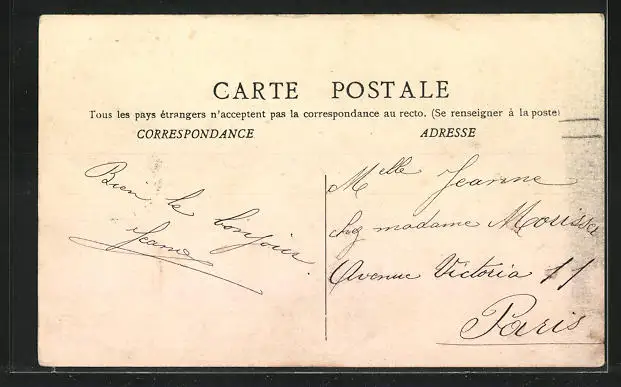 CARTE POSTALE
Tous les pays étrangers n'acceptent pas la correspondance au recto. (Se renseigner à la poste)
CORRESPONDANCE
ADRESSE
Bien le bonjour.
Jeanne
Melle Jeanne
chez madame
Avenue Victoria 11
Paris